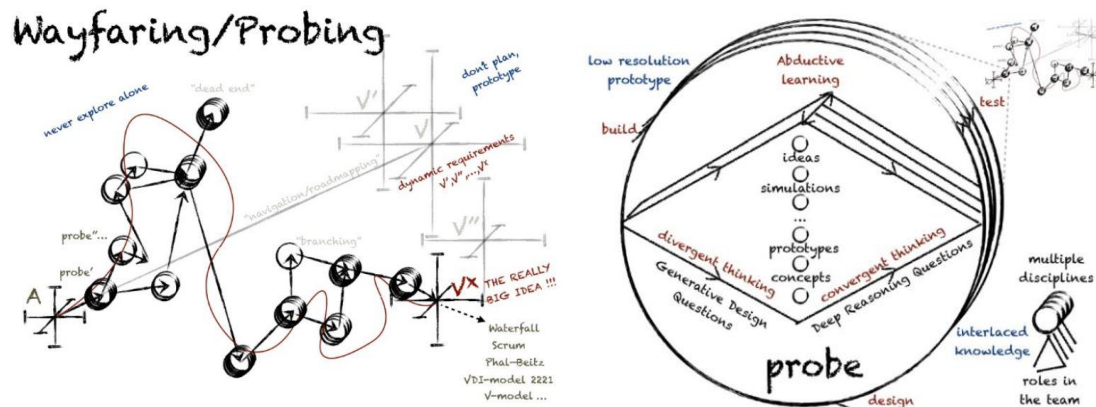 Wayfaring/Probing
never explore alone
"dead end"
don't plan,
prototype
V'
V
dynamic requirements
V',V'',...,Vˣ
"navigation/roadmapping"
V''
probe''...
probe'
A
"branching"
Vˣ
THE REALLY
BIG IDEA !!!
Waterfall
Scrum
Phal-Beitz
VDI-model 2221
V-model ...
low resolution
prototype
Abductive
learning
build
test
ideas
simulations
...
prototypes
concepts
divergent thinking
convergent thinking
Generative Design
Questions
Deep Reasoning Questions
probe
design
multiple
disciplines
interlaced
knowledge
roles in
the team